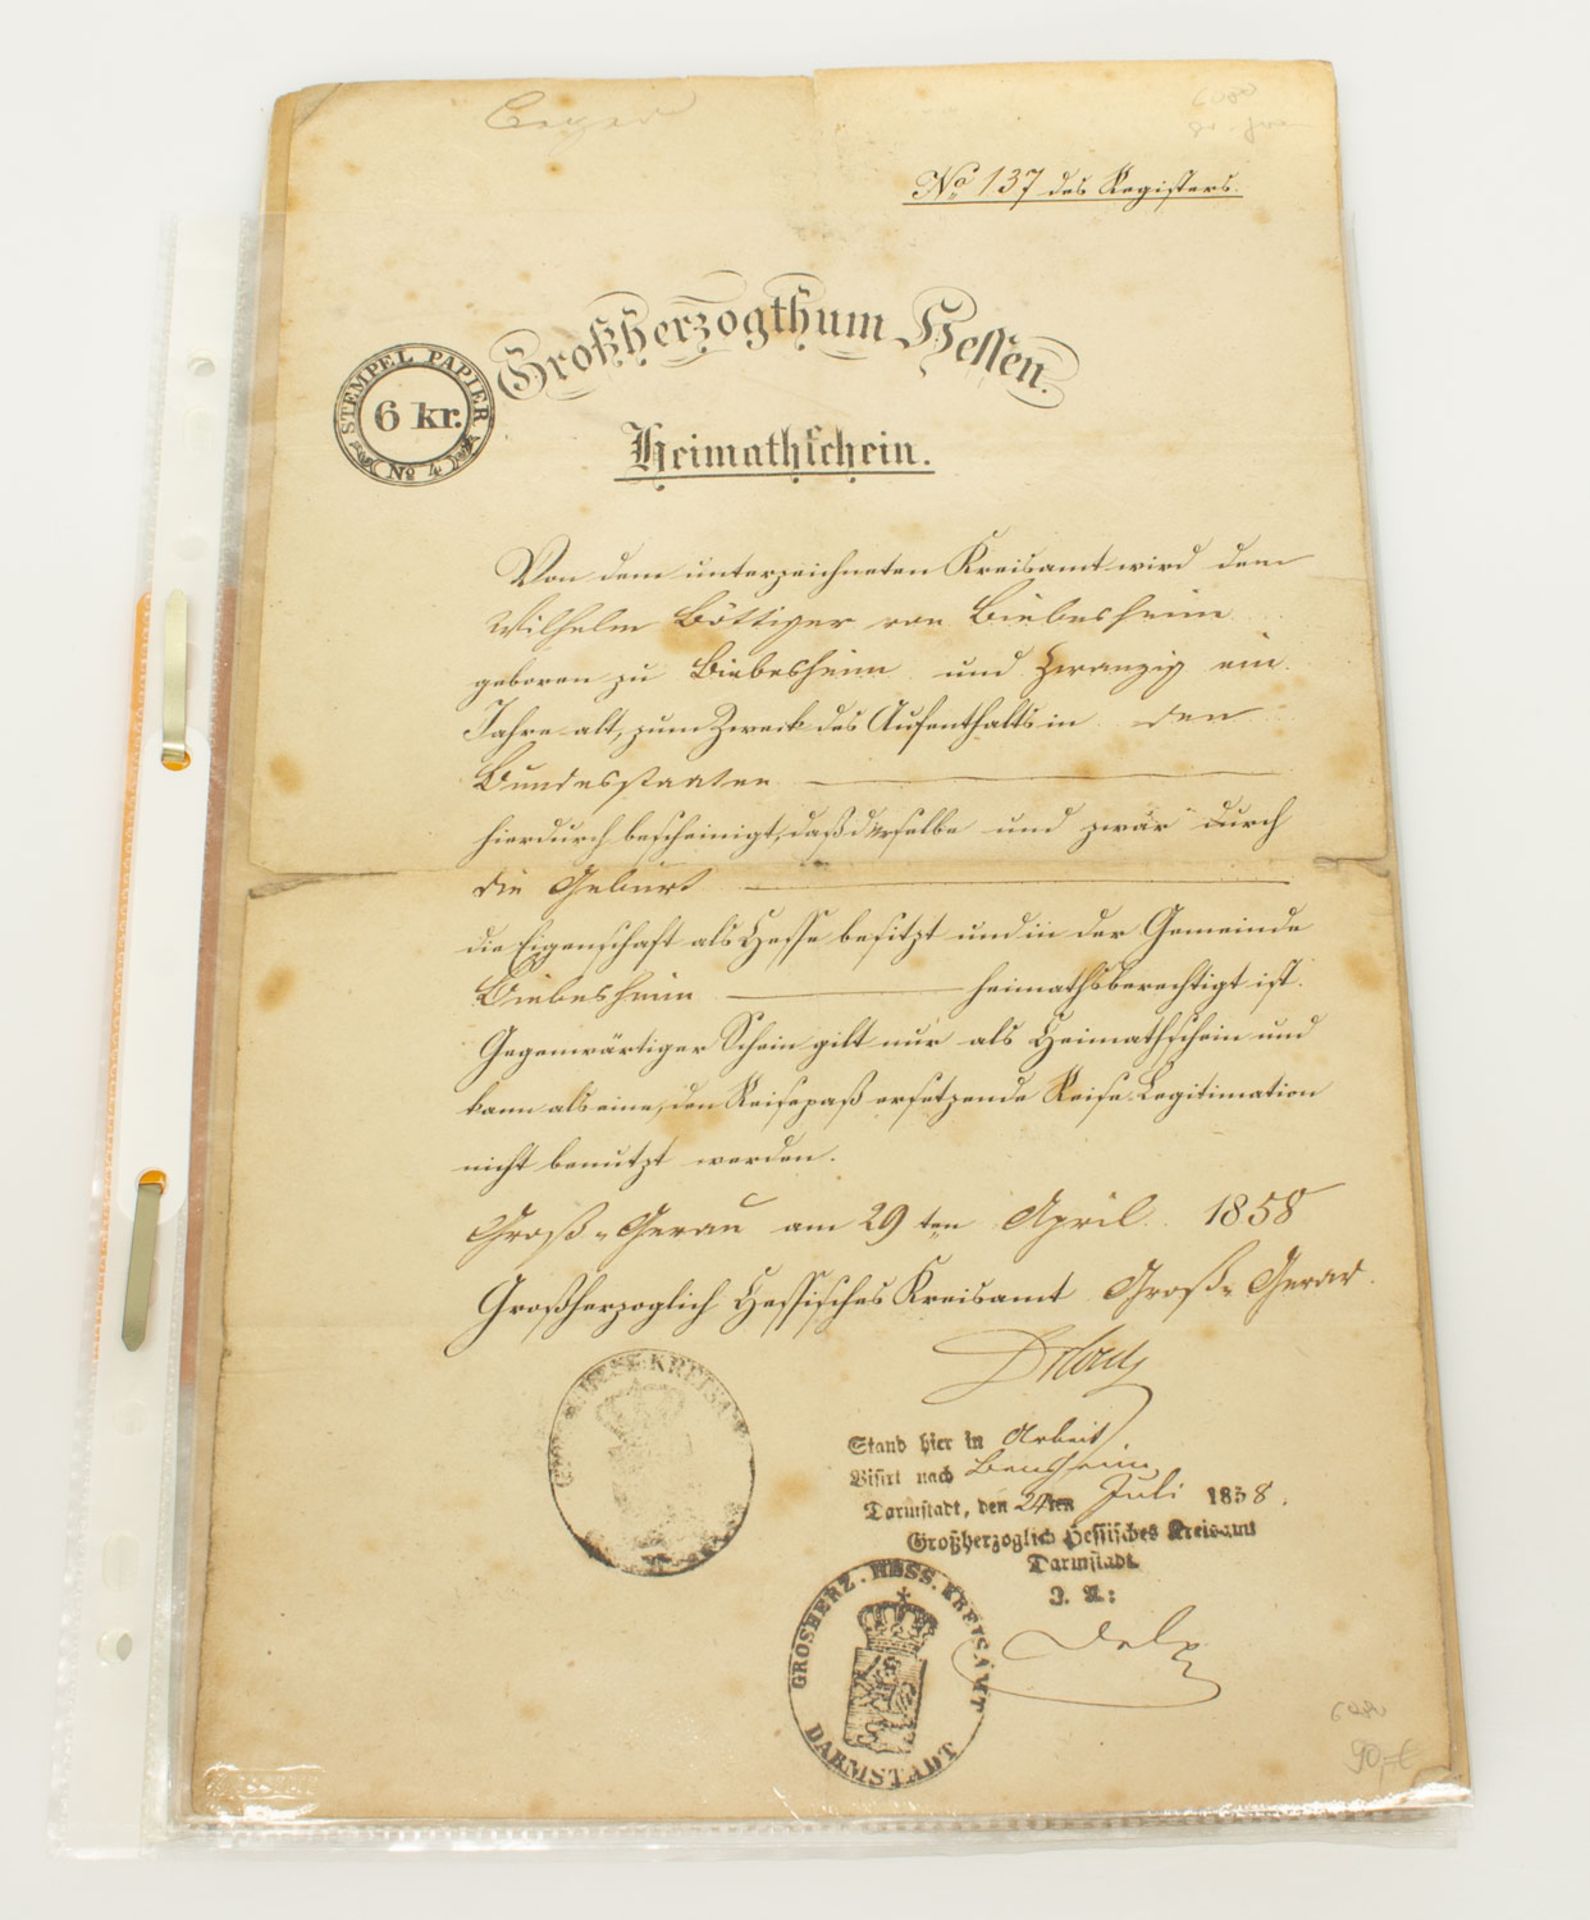 No 137 des Registers.
Großherzogthum Hessen.
STEMPEL PAPIER
6 kr.
No 4
Heimathschein.
Von dem unterzeichneten Kreisamt wird dem
Wilhelm Böttiger von Biebesheim
geboren zu Biebesheim und zwanzig ein
Jahre alt, zum Zweck des Aufenthalts in den
Bundesstaaten
hierdurch bescheinigt, daß derselbe und zwar durch
die Geburt
die Eigenschaft als Hesse besitzt und in der Gemeinde
Biebesheim heimathsberechtigt ist.
Gegenwärtiger Schein gilt nur als Heimathschein und
kann als eine, den Reisepaß ersetzende Reise-Legitimation
nicht benutzt werden.
Groß-Gerau am 29ten April 1858
Großherzoglich Hessisches Kreisamt Groß-Gerau.
HESS. KREISA
Stand hier in Arbeit
Visirt nach Bensheim
Darmstadt, den 24ten Juli 1858.
Großherzoglich Hessisches Kreisamt
Darmstadt
J. A:
GROSHERZ. HESS. KREISAMT
DARMSTADT
90,-€